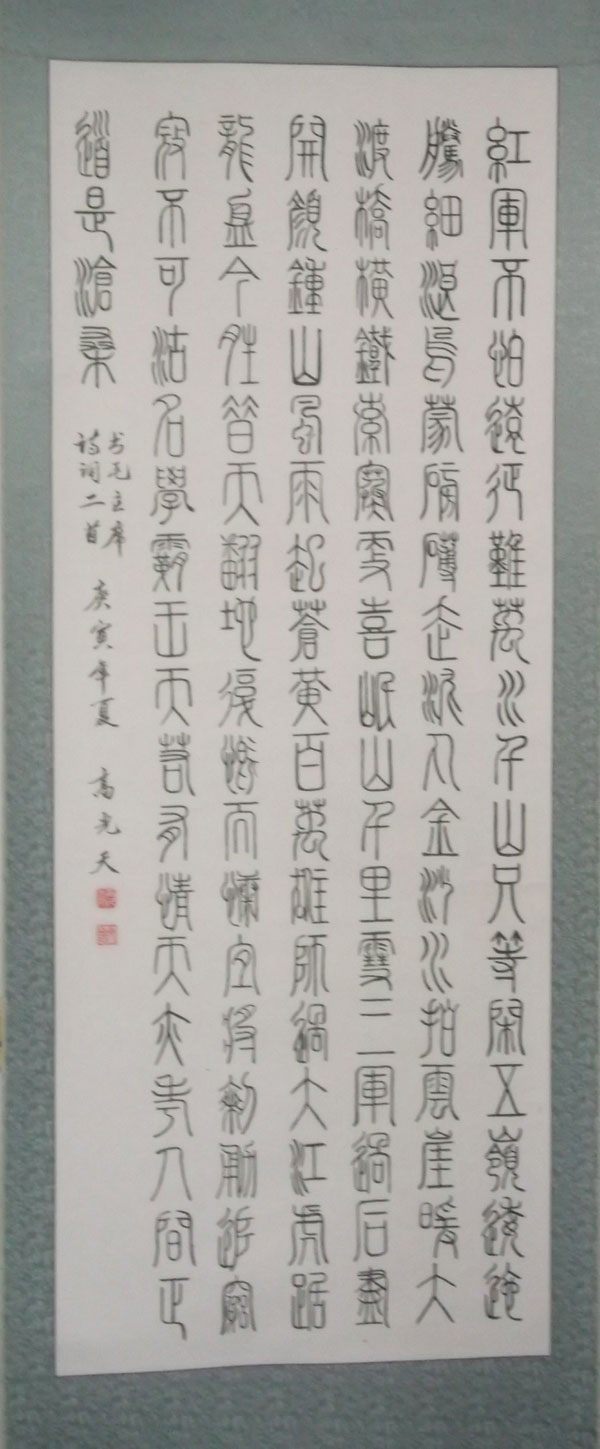 紅軍不怕遠征難萬水千山只等閑五嶺逶迤
騰細浪烏蒙磅礴走泥丸金沙水拍雲崖暖大
渡橋橫鐵索寒更喜岷山千里雪三軍過后盡
開顏鍾山風雨起蒼黃百萬雄師過大江虎踞
龍盤今勝昔天翻地覆慨而慷宜將剩勇追窮
寇不可沽名學霸王天若有情天亦老人間正
道是滄桑
书毛主席
诗词二首
庚寅年夏 高光天